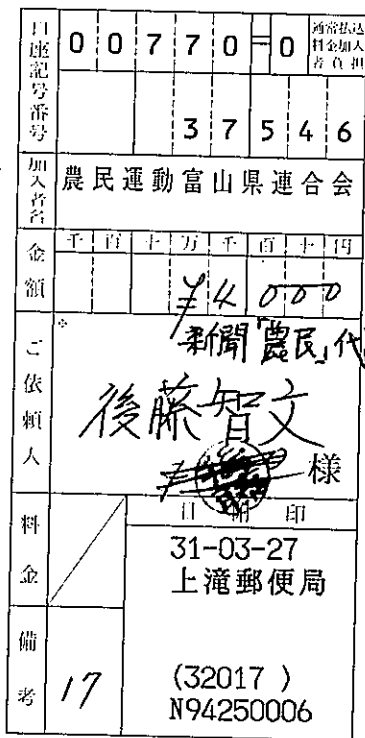 口座記号番号
00770=0
通常払込料金加入者負担
37546
加入者名
農民運動富山県連合会
金額
千百十万千百十円
¥4000
ご依頼人
※
新聞「農民」代
後藤智文
様
料金
日附印
31-03-27
上滝郵便局
備考
17
(32017 )
N94250006